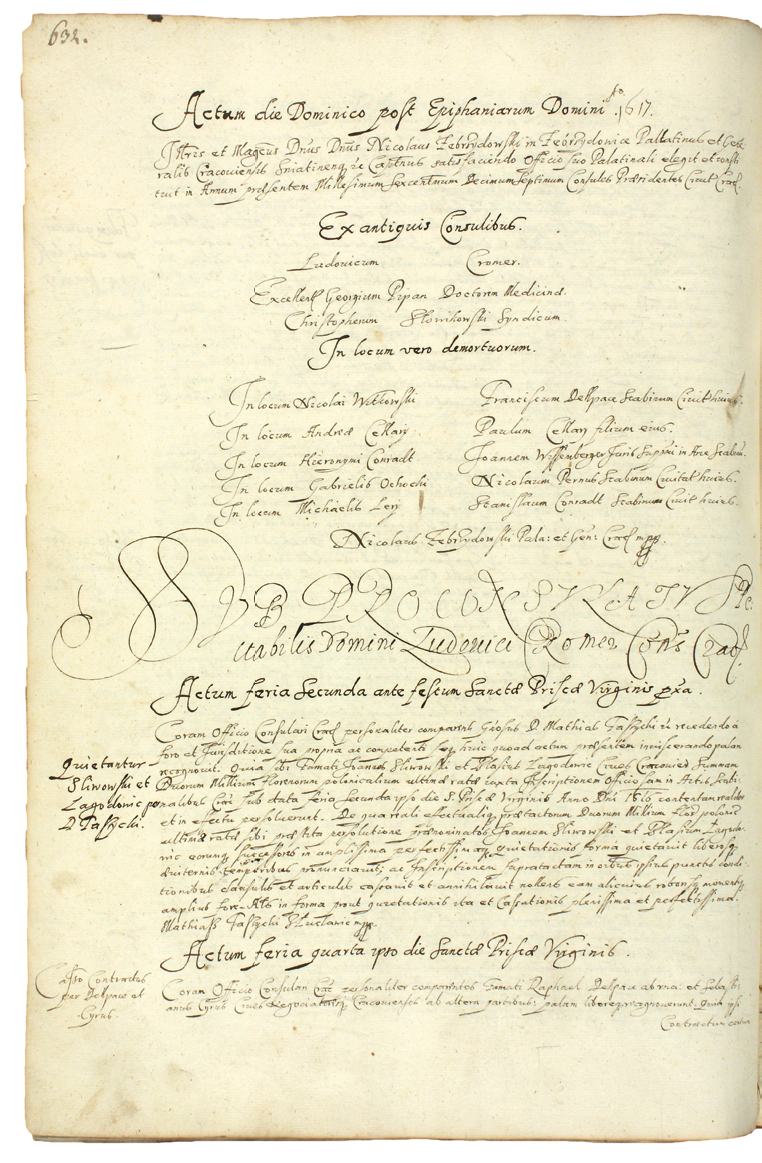 632.
Actum die Dominico post Epiphaniarum Domini Ao. 1617.
Illris et Magcus Dnus Dnus Nicolaus Zebrzydowski in Zebrzydowice Pallatinus et Gene
ralis Cracoviensis Sniatinensq etc Captnus satisfaciendo Officio suo Palatinali elegit et consti
tuit in Annum praesentem Millesimum Sexcentnum Decimumseptimum Consules Praesidentes Civit Crac
Ex antiquis Consulibus.
Ludovicum Cromer.
Excellent Georgium Pipan Doctorem Medicinae.
Christopherum Słowikowski Syndicum.
In locum vero demortuorum.
In locum Nicolai Witkowski Franciscum Dellpace Scabinum Civit huius.
In locum Andreae Cellary Paulum Cellary filium eius.
In locum Hieronymi Conradt Joannem Wiffenberger Juris Suppmi in Arce Scabin.
In locum Gabrielis Ochocki Nicolaum Pernus Scabinum Civitat huius.
In locum Michaelis Lery Stanislaum Conradt Scabinum Civit huius.
Nicolaus Zebrzydowski Pala: et Gen: Crac mpp.
SVB PROCONSVLATV Spe
ctabilis Domini Ludovici Cromer Cons Crac
Actum feria Secunda ante festum Sanctae Priscae Virginis pxa.
Coram Officio Consulari Crac personaliter comparens Gnosus D Mathias Taszycki recedendo a
foro et Jurisditione sua propria ac competenti seq huic quoad actum praesentem inviscerando palam
recognovit. Quia sibi Famati Joannes Sliwowski et Blasius Lagodwic Cives Cracovien Summam
Duorum Millium florenorum polonicalium ultimae ratae iuxta Inscriptionem Officiosam in Actis Senti
Quietantur
Sliwowski et
Lagodwic per
D Taszycki.
nalibus Civi sub data feria Secunda ipso die S. Priscae Virginis Anno Dni 1616 contentam realiter
et in effectu persolverunt. De qua reali effectualiq praetactorum Duorum Millium flor polonic
ultimae ratae sibi praestita persolutione praenominatos Joannem Sliwowski et Blasium Lagod
wic eorumq successores in amplissima perfectissimaq quietationis forma quietavit liberosq
aeviternis temporibus pronunciavit; ac Inscriptionem supratactam in oibus ipsius punctis condi
tionibus clausulis et articulis cassavit et annihilavit nolens eam alicuius roboris momentiq
amplius fore. Als in forma prout quietationis ita et Cassationis plenissima et perfectissima.
Mathiass Taszycki z Lucławic mpp.
Actum feria quarta ipso die Sanctae Priscae Virginis.
Casso Contractus
per Dellpace et
Cyrus.
Coram Officio Consulari Crac personaliter comparentes Famati Raphael Delpace ab una: et Sebasti
anus Cyrus Cives et Negociatorsq Cracovienses ab altera partibus: palam libereq recognoverunt. Quia ipsi
Contractum